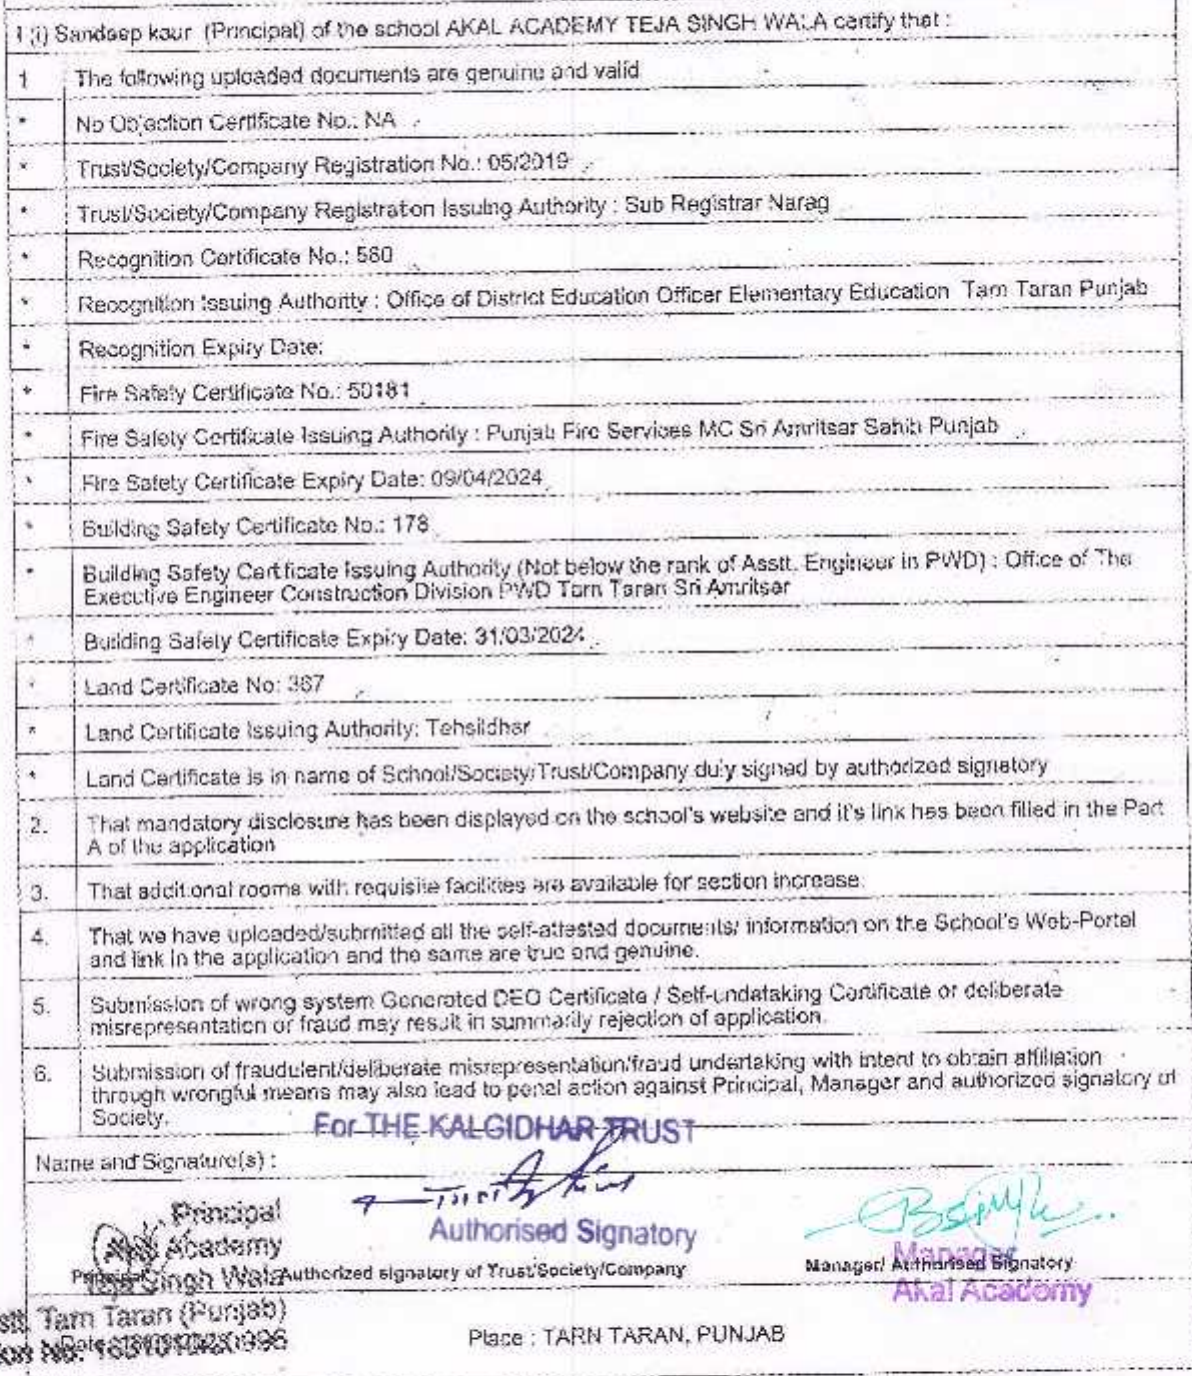 1 (i) Sandeep kaur (Principal) of the school AKAL ACADEMY TEJA SINGH WALA certify that :
1 The following uploaded documents are genuine and valid
* No Objection Certificate No.: NA
* Trust/Society/Company Registration No.: 05/2019
* Trust/Society/Company Registration Issuing Authority : Sub Registrar Narag
* Recognition Certificate No.: 560
* Recognition Issuing Authority : Office of District Education Officer Elementary Education Tarn Taran Punjab
* Recognition Expiry Date:
* Fire Safety Certificate No.: 50181
* Fire Safety Certificate Issuing Authority : Punjab Fire Services MC Sri Amritsar Sahib Punjab
* Fire Safety Certificate Expiry Date: 09/04/2024
* Building Safety Certificate No.: 178
* Building Safety Certificate Issuing Authority (Not below the rank of Asstt. Engineer in PWD) : Office of The
Executive Engineer Construction Division PWD Tarn Taran Sri Amritsar
* Building Safety Certificate Expiry Date: 31/03/2024
* Land Certificate No: 367
* Land Certificate Issuing Authority: Tehsildhar
* Land Certificate is in name of School/Society/Trust/Company duly signed by authorized signatory
2. That mandatory disclosure has been displayed on the school's website and it's link has been filled in the Part
A of the application
3. That additional rooms with requisite facilities are available for section increase.
4. That we have uploaded/submitted all the self-attested documents/ information on the School's Web-Portal
and link in the application and the same are true and genuine.
5. Submission of wrong system Generated DEO Certificate / Self-undataking Certificate or deliberate
misrepresentation or fraud may result in summarily rejection of application.
6. Submission of fraudulent/deliberate misrepresentation/fraud undertaking with intent to obtain affiliation
through wrongful means may also lead to penal action against Principal, Manager and authorized signatory of
Society.
For THE KALGIDHAR TRUST
Name and Signature(s) :
Principal
Akal Academy
Teja Singh Wala
Authorised Signatory
Authorized signatory of Trust/Society/Company
Manager/ Authorised Signatory
Manager
Akal Academy
Tarn Taran (Punjab)
Place : TARN TARAN, PUNJAB